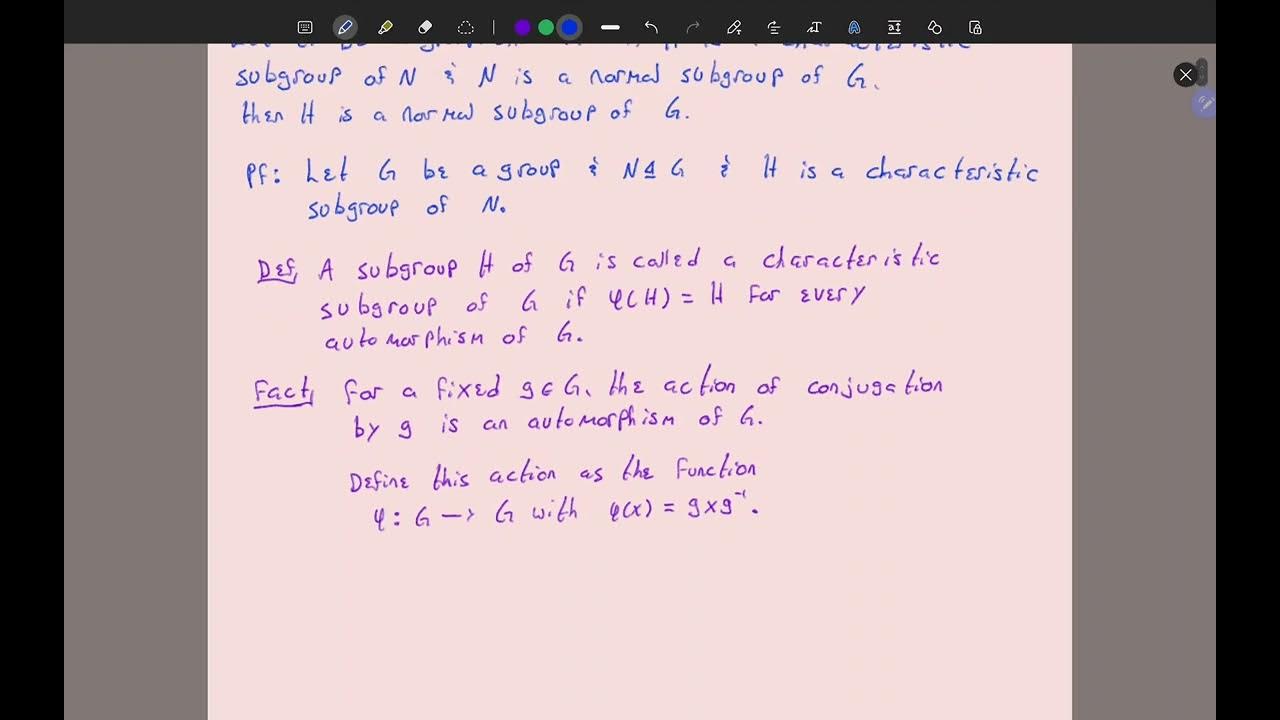 subgroup of N & N is a normal subgroup of G.
then H is a normal subgroup of G.
Pf: Let G be a group & N⊴G & H is a characteristic
subgroup of N.
Def, A subgroup H of G is called a characteristic
subgroup of G if φ(H) = H for every
automorphism of G.
Fact, For a fixed g∈G, the action of conjugation
by g is an automorphism of G.
Define this action as the function
φ: G → G with φ(x) = gxg⁻¹.